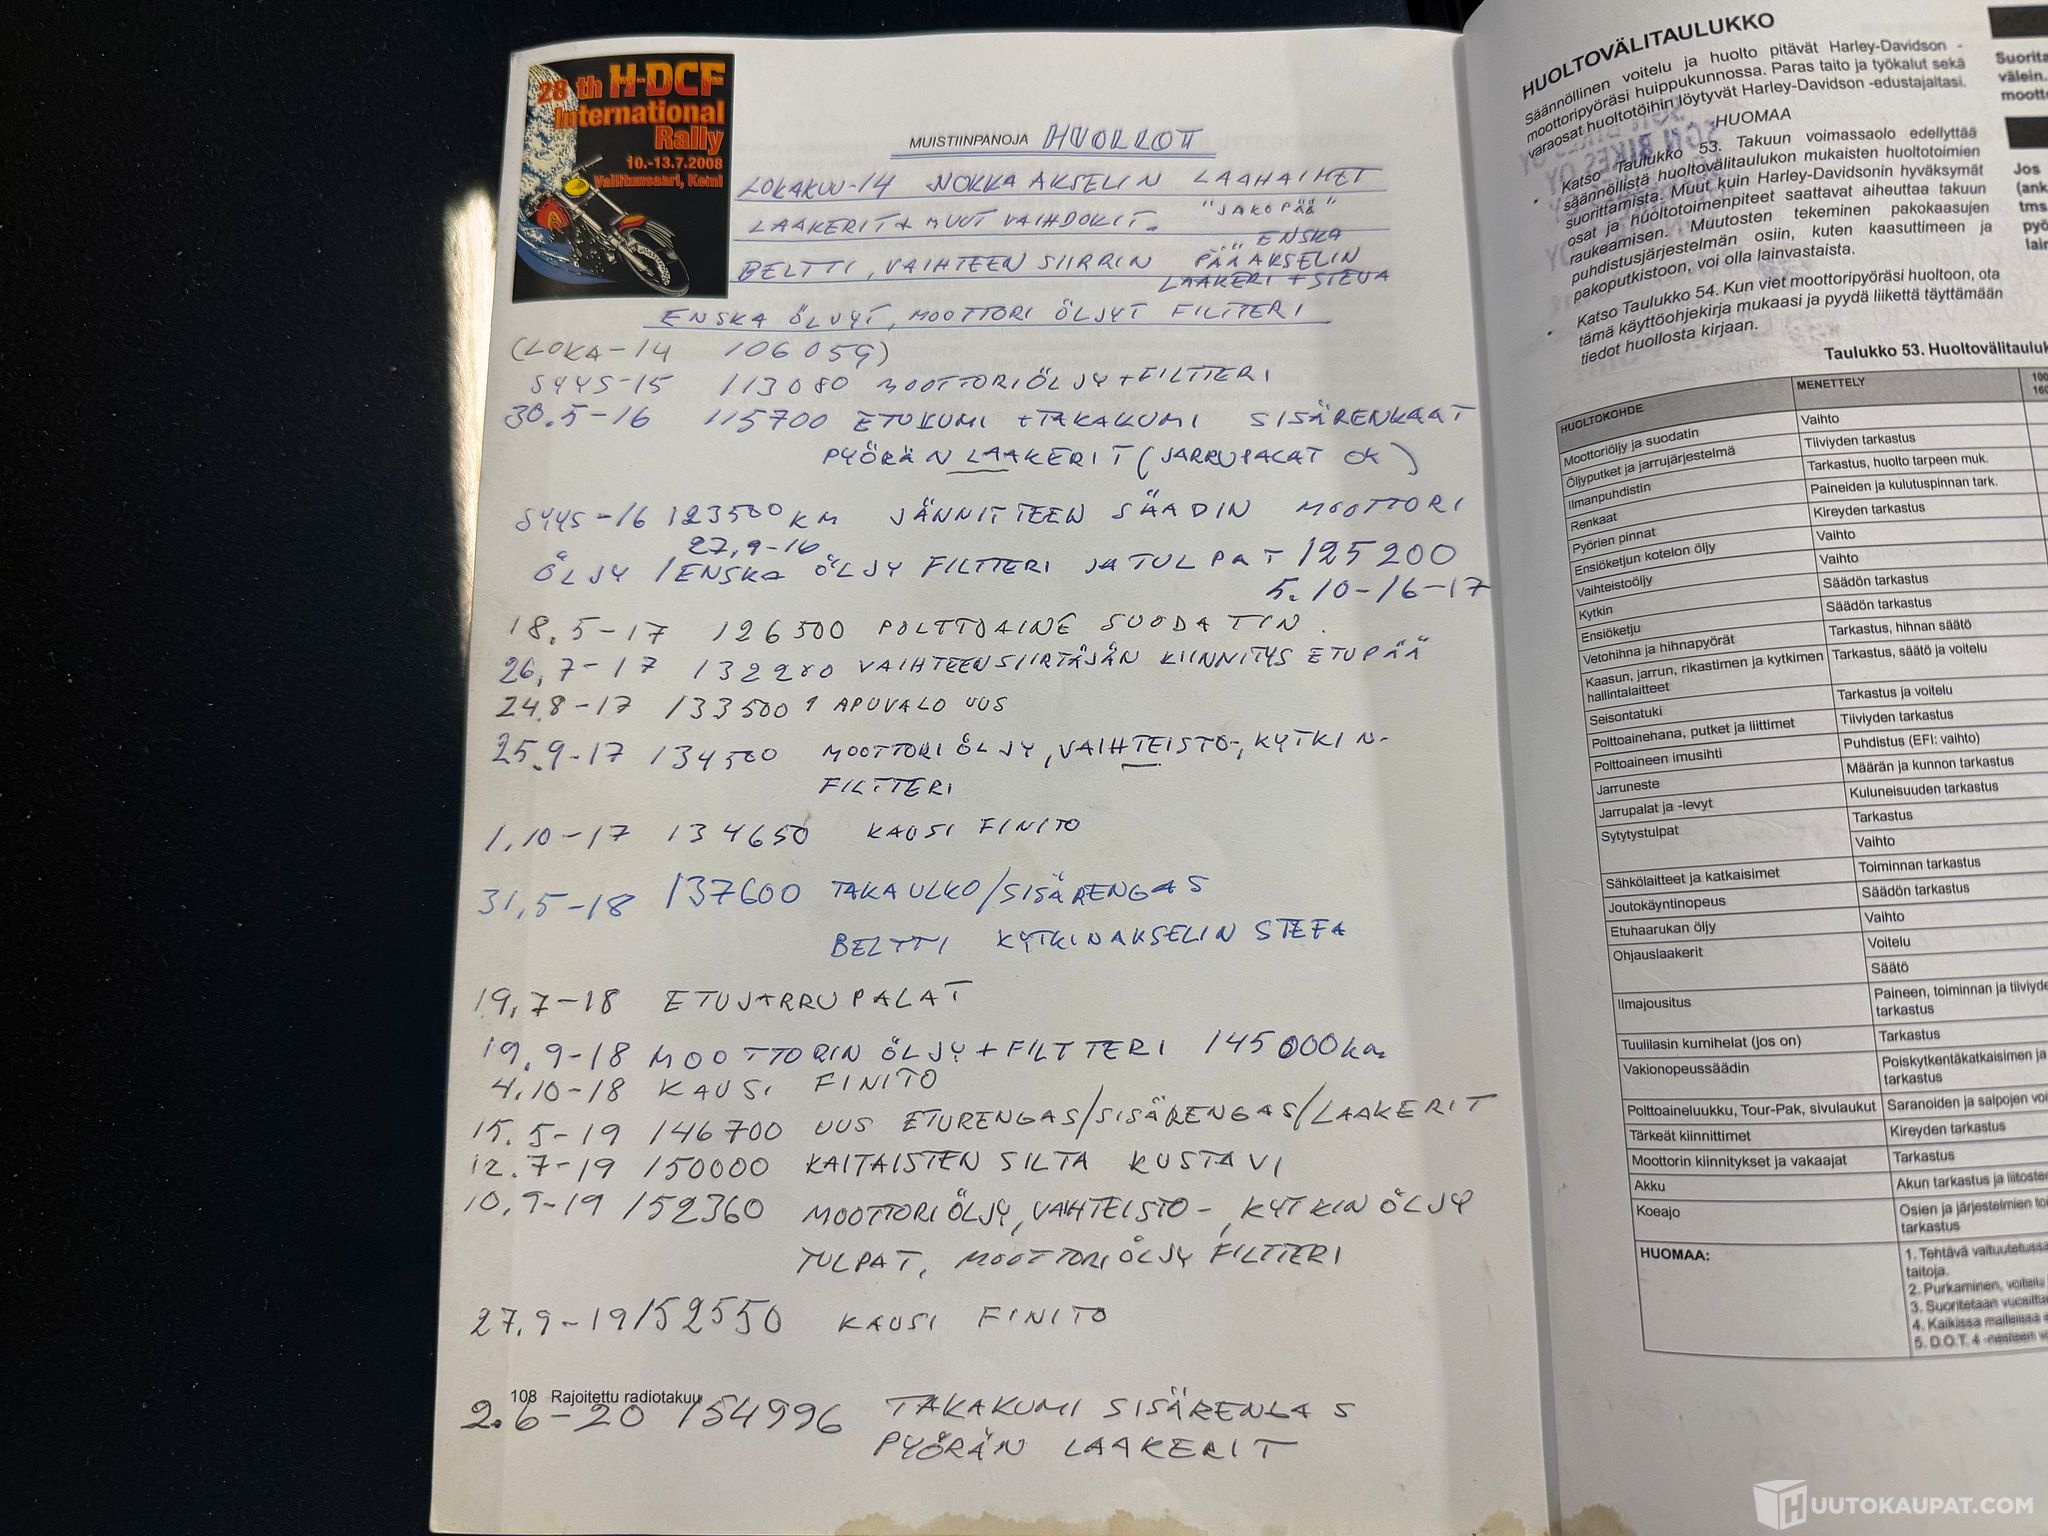 28 th H-DCF
International
Rally
10.-13.7.2008
Vallitunsaari, Kemi
MUISTIINPANOJA HUOLLOT
LOKAKUU-14 NOKKA AKSELIN LAAHAIMET
LAAKERIT + MUUT VAIHDOKIT. "JAKOPÄÄ"
BELTTI, VAIHTEEN SIIRRIN PÄÄAKSELIN
ENSKA
LAAKERI + STEVA
ENSKA ÖLJYT, MOOTTORI ÖLJYT FILTTERI
(LOKA-14 106059)
SYYS-15 113080 MOOTTORIÖLJY+FILTTERI
30.5-16 115700 ETUKUMI +TAKAKUMI SISÄRENKAAT
PYÖRÄN LAAKERIT (JARRUPALAT OK)
SYYS-16 123500 KM JÄNNITTEEN SÄÄDIN MOOTTORI
27.9-16
ÖLJY /ENSKA ÖLJY FILTTERI JA TULPAT 125200
5.10-16-17
18.5-17 126500 POLTTOAINE SUODATIN.
26.7-17 132200 VAIHTEENSIIRTÄJÄN KIINNITYS ETUPÄÄ
24.8-17 133500 1 APUVALO UUS
25.9-17 134500 MOOTTORIÖLJY, VAIHTEISTO-, KYTKIN-
FILTTERI
1.10-17 134650 KAUSI FINITO
31.5-18 137600 TAKAULKO/SISÄRENGAS
BELTTI KYTKINAKSELIN STEFA
19.7-18 ETUJARRUPALAT
19.9-18 MOOTTORIN ÖLJY+FILTTERI 145000km
4.10-18 KAUSI FINITO
15.5-19 146700 UUS ETURENGAS/SISÄRENGAS/LAAKERIT
12.7-19 150000 KAITAISTEN SILTA KUSTAVI
10.9-19 152360 MOOTTORIÖLJY, VAIHTEISTO-, KYTKIN ÖLJY
TULPAT, MOOTTORIÖLJY FILTTERI
27.9-19 152550 KAUSI FINITO
108 Rajoitettu radiotakuu
2.6-20 154996 TAKAKUMI SISÄRENGAS
PYÖRÄN LAAKERIT
HUOLTOVÄLITAULUKKO
Säännöllinen voitelu ja huolto pitävät Harley-Davidson -
moottoripyöräsi huippukunnossa. Paras taito ja työkalut sekä
varaosat huoltotöihin löytyvät Harley-Davidson -edustajaltasi.
HUOMAA
• Katso Taulukko 53. Takuun voimassaolo edellyttää
säännöllistä huoltovälitaulukon mukaisten huoltotoimien
suorittamista. Muut kuin Harley-Davidsonin hyväksymät
osat ja huoltotoimenpiteet saattavat aiheuttaa takuun
raukeamisen. Muutosten tekeminen pakokaasujen
puhdistusjärjestelmän osiin, kuten kaasuttimeen ja
pakoputkistoon, voi olla lainvastaista.
• Katso Taulukko 54. Kun viet moottoripyöräsi huoltoon, ota
tämä käyttöohjekirja mukaasi ja pyydä liikettä täyttämään
tiedot huollosta kirjaan.
Taulukko 53. Huoltovälitauluk
HUOLTOKOHDE MENETTELY 100
160
Moottoriöljy ja suodatin Vaihto
Öljyputket ja jarrujärjestelmä Tiiviyden tarkastus
Ilmanpuhdistin Tarkastus, huolto tarpeen muk.
Renkaat Paineiden ja kulutuspinnan tark.
Pyörien pinnat Kireyden tarkastus
Ensiöketjun kotelon öljy Vaihto
Vaihteistoöljy Vaihto
Kytkin Säädön tarkastus
Ensiöketju Säädön tarkastus
Vetohihna ja hihnapyörät Tarkastus, hihnan säätö
Kaasun, jarrun, rikastimen ja kytkimen Tarkastus, säätö ja voitelu
hallintalaitteet
Seisontatuki Tarkastus ja voitelu
Polttoainehana, putket ja liittimet Tiiviyden tarkastus
Polttoaineen imusihti Puhdistus (EFI: vaihto)
Jarruneste Määrän ja kunnon tarkastus
Jarrupalat ja -levyt Kuluneisuuden tarkastus
Sytytystulpat Tarkastus
Vaihto
Sähkölaitteet ja katkaisimet Toiminnan tarkastus
Joutokäyntinopeus Säädön tarkastus
Etuhaarukan öljy Vaihto
Ohjauslaakerit Voitelu
Säätö
Ilmajousitus Paineen, toiminnan ja tiiviyde
tarkastus
Tuulilasin kumihelat (jos on) Tarkastus
Vakionopeussäädin Poiskytkentäkatkaisimen ja
tarkastus
Polttoaineluukku, Tour-Pak, sivulaukut Saranoiden ja salpojen voi
Tärkeät kiinnittimet Kireyden tarkastus
Moottorin kiinnitykset ja vakaajat Tarkastus
Akku Akun tarkastus ja liitosten
Koeajo Osien ja järjestelmien to
tarkastus
HUOMAA: 1. Tehtävä valtuutetussa
taitoja.
2. Purkaminen, voitelu
3. Suoritetaan vuosittai
4. Kaikissa malleissa
5. D.O.T. 4 -nesteen va
Suorita
välein.
mootto
Jos
(ank
tms.
pyö
lain
HUUTOKAUPAT.COM